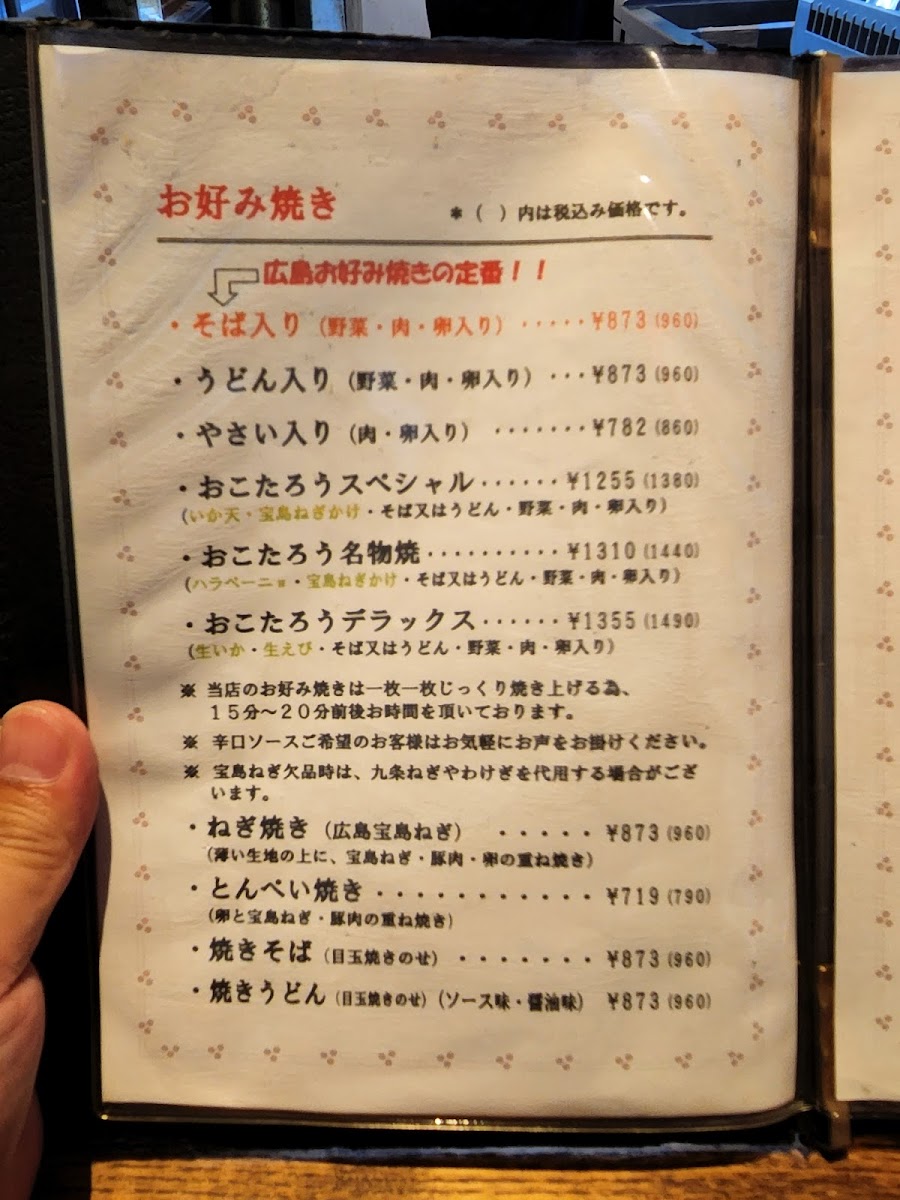 お好み焼き ＊（ ）内は税込み価格です。
広島お好み焼きの定番！！
・そば入り（野菜・肉・卵入り）・・・・・¥873(960)
・うどん入り（野菜・肉・卵入り）・・・¥873(960)
・やさい入り（肉・卵入り）・・・・・・・¥782(860)
・おこたろうスペシャル・・・・・・¥1255(1380)
（いか天・宝島ねぎかけ・そば又はうどん・野菜・肉・卵入り）
・おこたろう名物焼・・・・・・・・・・¥1310(1440)
（ハラペーニョ・宝島ねぎかけ・そば又はうどん・野菜・肉・卵入り）
・おこたろうデラックス・・・・・・¥1355(1490)
（生いか・生えび・そば又はうどん・野菜・肉・卵入り）
※ 当店のお好み焼きは一枚一枚じっくり焼き上げる為、
１５分～２０分前後お時間を頂いております。
※ 辛口ソースご希望のお客様はお気軽にお声をお掛けください。
※ 宝島ねぎ欠品時は、九条ねぎやわけぎを代用する場合がござ
います。
・ねぎ焼き（広島宝島ねぎ） ・・・・・¥873(960)
（薄い生地の上に、宝島ねぎ・豚肉・卵の重ね焼き）
・とんぺい焼き・・・・・・・・・・・¥719(790)
（卵と宝島ねぎ・豚肉の重ね焼き）
・焼きそば（目玉焼きのせ）・・・・・・・¥873(960)
・焼きうどん（目玉焼きのせ）（ソース味・醤油味） ¥873(960)